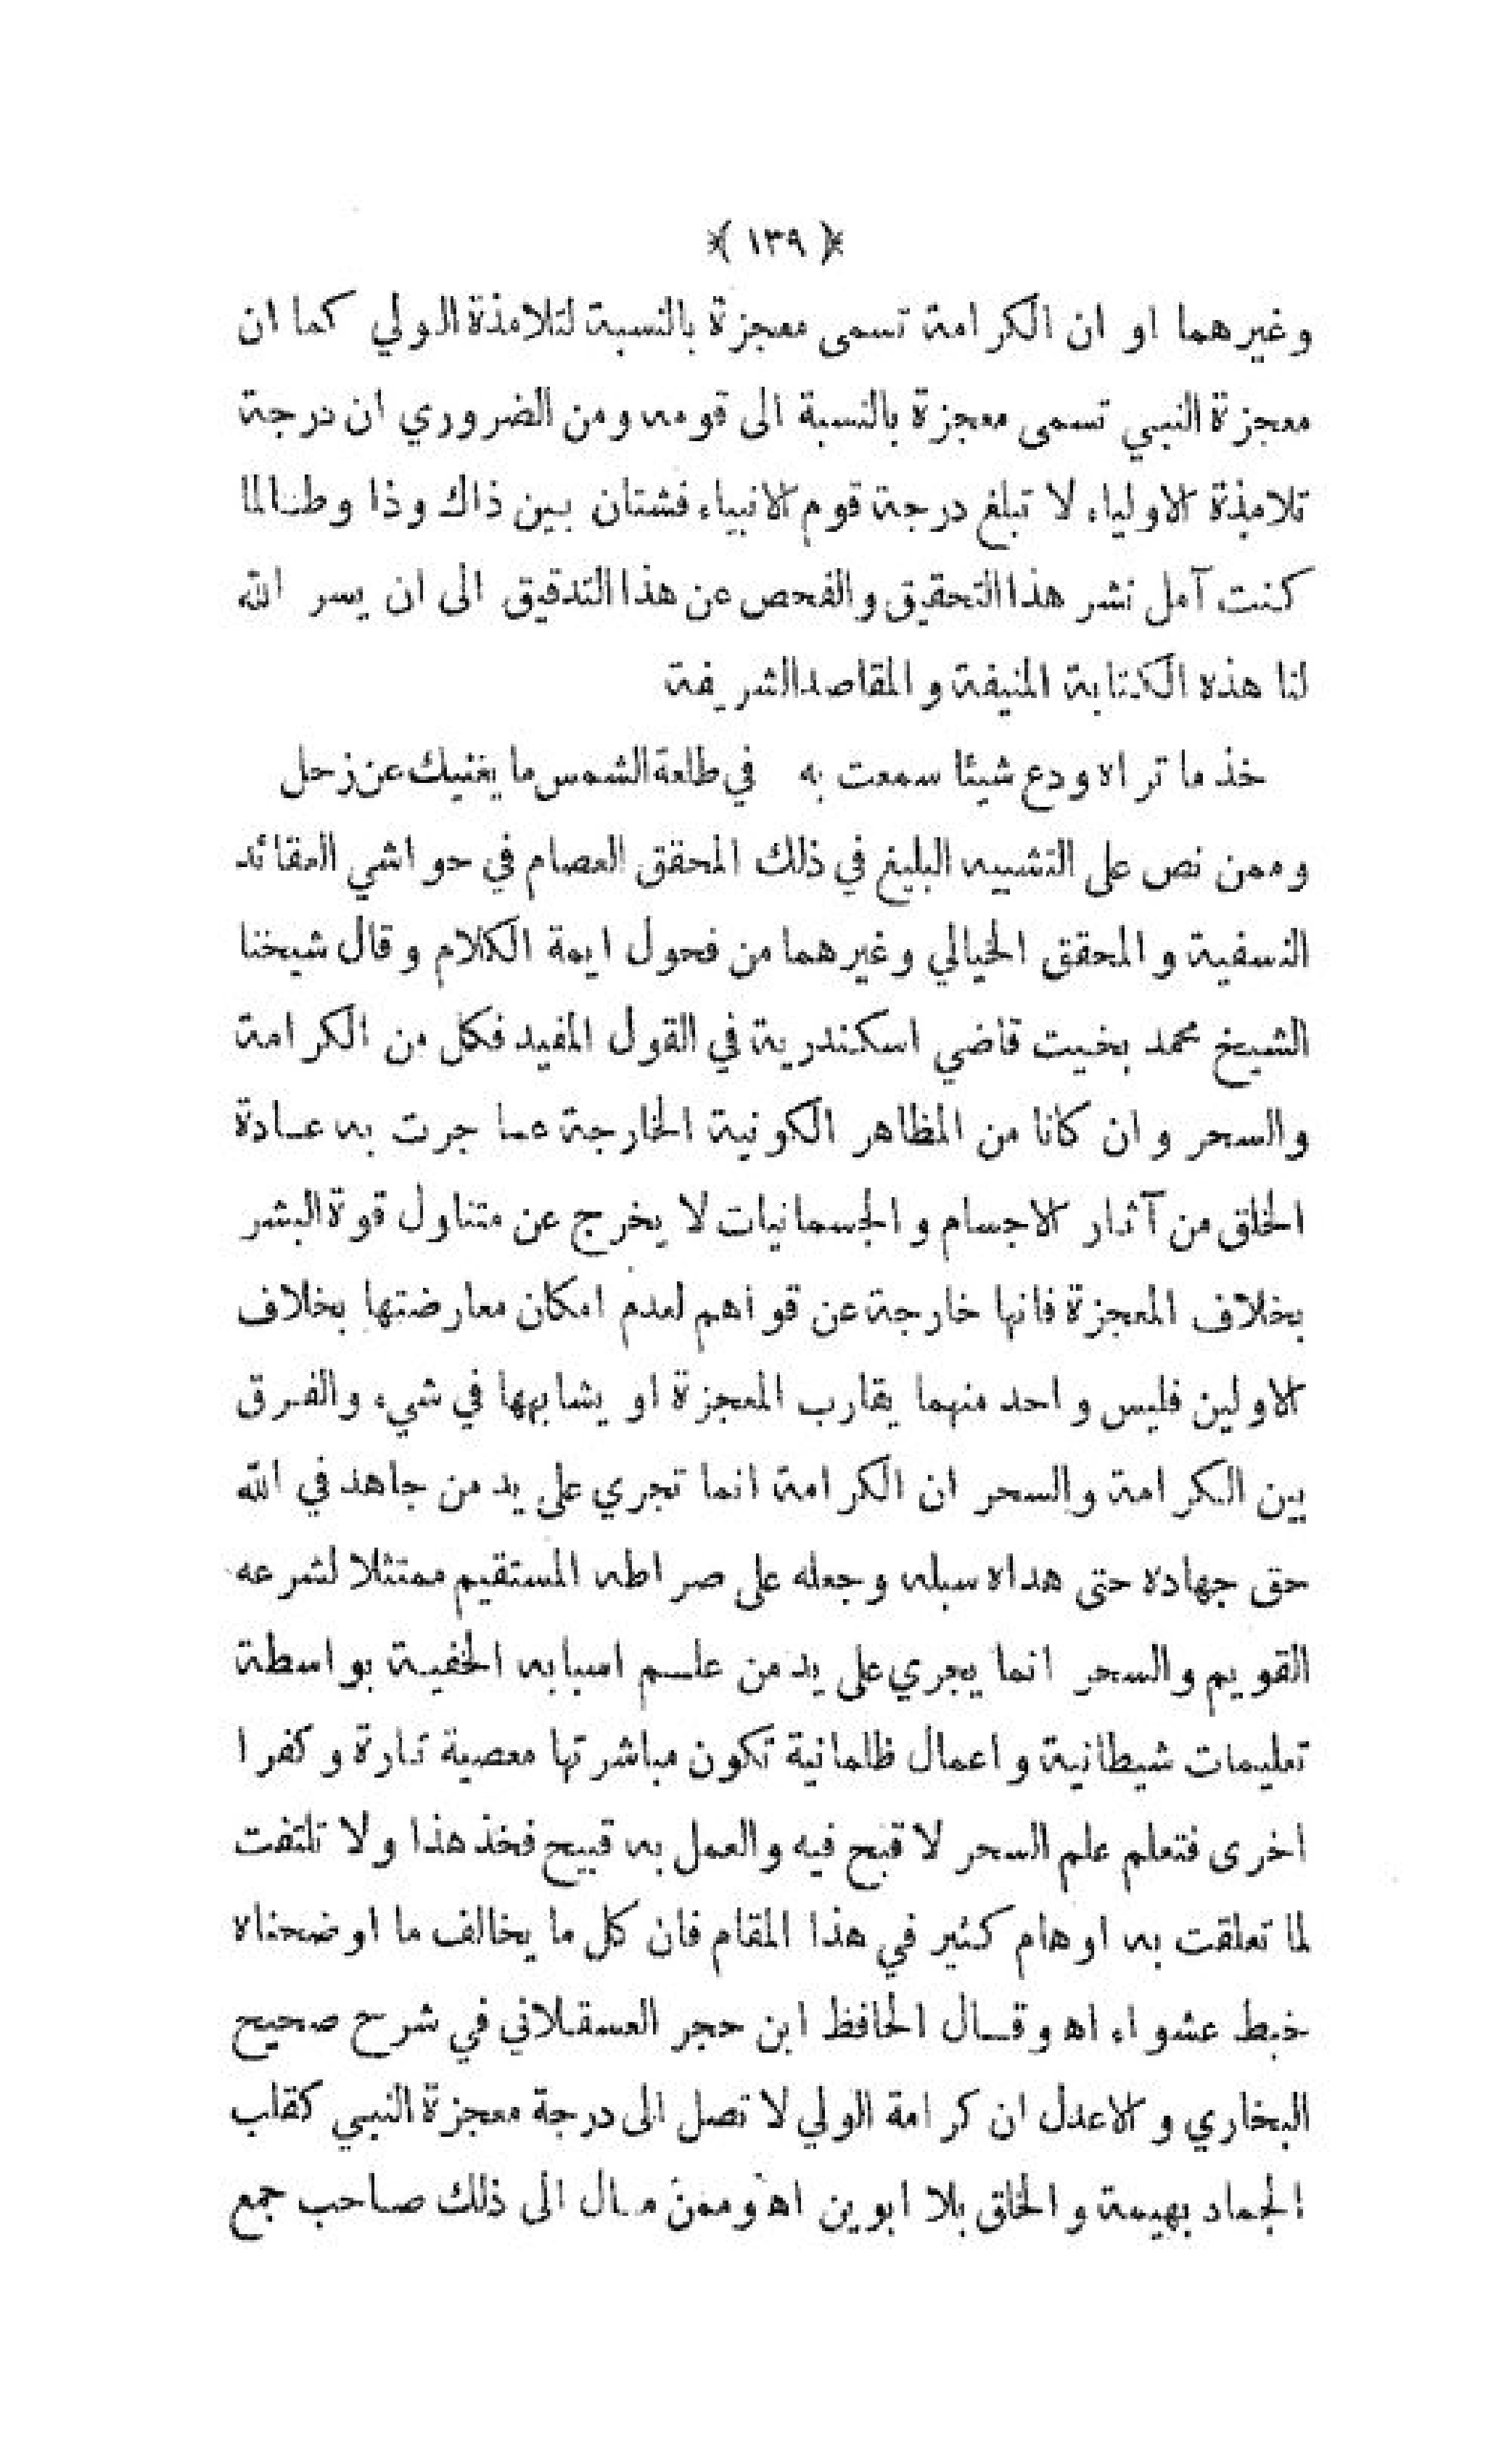 ﴿ ١٣٩ ﴾
وغيرهما او ان الكرامة تسمى معجزة بالنسبة لتلامذة الولي كما ان
معجزة النبي تسمى معجزة بالنسبة الى قومه ومن الضروري ان درجة
تلامذة الاولياء لا تبلغ درجة قوم الانبياء فشتان بين ذاك وذا وطالما
كنت آمل نشر هذا التحقيق والفحص عن هذا التدقيق الى ان يسر الله
لنا هذه الكتابة المنيفة والمقاصد الشريفة
خذ ما تراه ودع شيئا سمعت به في طلعة الشمس ما يغنيك عن زحل
وممن نص على التشبيه البليغ في ذلك المحقق العصام في حواشي العقائد
النسفية والمحقق الخيالي وغيرهما من فحول ايمة الكلام وقال شيخنا
الشيخ محمد بخيت قاضي اسكندرية في القول المفيد فكل من الكرامة
والسحر وان كانا من المظاهر الكونية الخارجة عما جرت به عادة
الخلق من آثار الاجسام والجسمانيات لا يخرج عن متناول قوة البشر
بخلاف المعجزة فانها خارجة عن قواهم لعدم امكان معارضتها بخلاف
الاولين فليس واحد منهما يقارب المعجزة او يشابهها في شيء والفرق
بين الكرامة والسحر ان الكرامة انما تجري على يد من جاهد في الله
حق جهاده حتى هداه سبله وجعله على صراطه المستقيم ممتثلا لشرعه
القويم والسحر انما يجري على يد من علم اسبابه الخفية بواسطة
تعليمات شيطانية واعمال ظلمانية تكون مباشرتها معصية تارة وكفرا
اخرى فتعلم علم السحر لا قبح فيه والعمل به قبيح فخذ هذا ولا تلتفت
لما تعلقت به اوهام كثير في هذا المقام فان كل ما يخالف ما اوضحناه
خبط عشواء اه وقال الحافظ ابن حجر العسقلاني في شرح صحيح
البخاري والاعدل ان كرامة الولي لا تصل الى درجة معجزة النبي كقلب
الجماد بهيمة والخلق بلا ابوين اه وممن مال الى ذلك صاحب جمع